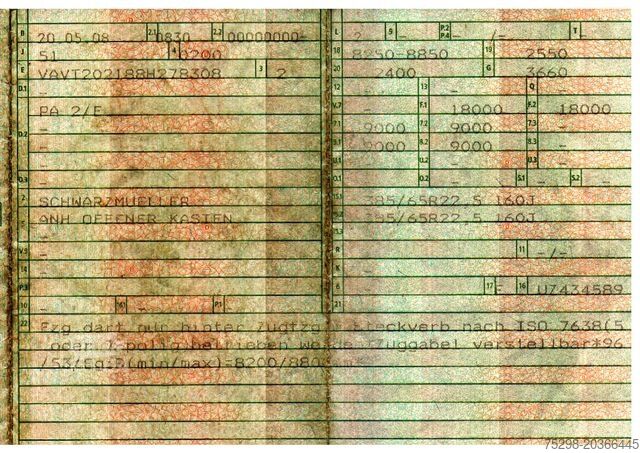 B 20.05.08 2.1 0830 2.2 00000000-
J 51 4 0200
E VAVT202188H278308 3 2
D.1 -
PA 2/E
D.2 -
-
-
D.3 -
2 SCHWARZMUELLER
5 ANH OFFENER KASTEN
V.9 -
14 -
P.3 -
10 - 14.1 - P.1
22 Fzg darf nur hinter Zugfzg
L 2 9 - P.2 P.4 -/- T -
18 8250-8850 19 2550
20 2400 G 3660
12 - 13 - Q -
V.7 - F.1 18000 F.2 18000
7.1 9000 7.2 9000 7.3 -
8.1 9000 8.2 9000 8.3 -
U.1 - U.2 - U.3 -
O.1 - O.2 - S.1 - S.2 -
15.1 385/65R22.5 160J
15.2 385/65R22.5 160J
15.3 -
R - 11 -/-
K -
6 - 17 - 16 U7434589
21 -
Steckverb nach ISO 7638(5
oder 7-polig betrieben werde Zuggabel verstellbar*96
/53/Eg:D(min/max)=8200/880
75298-20366445